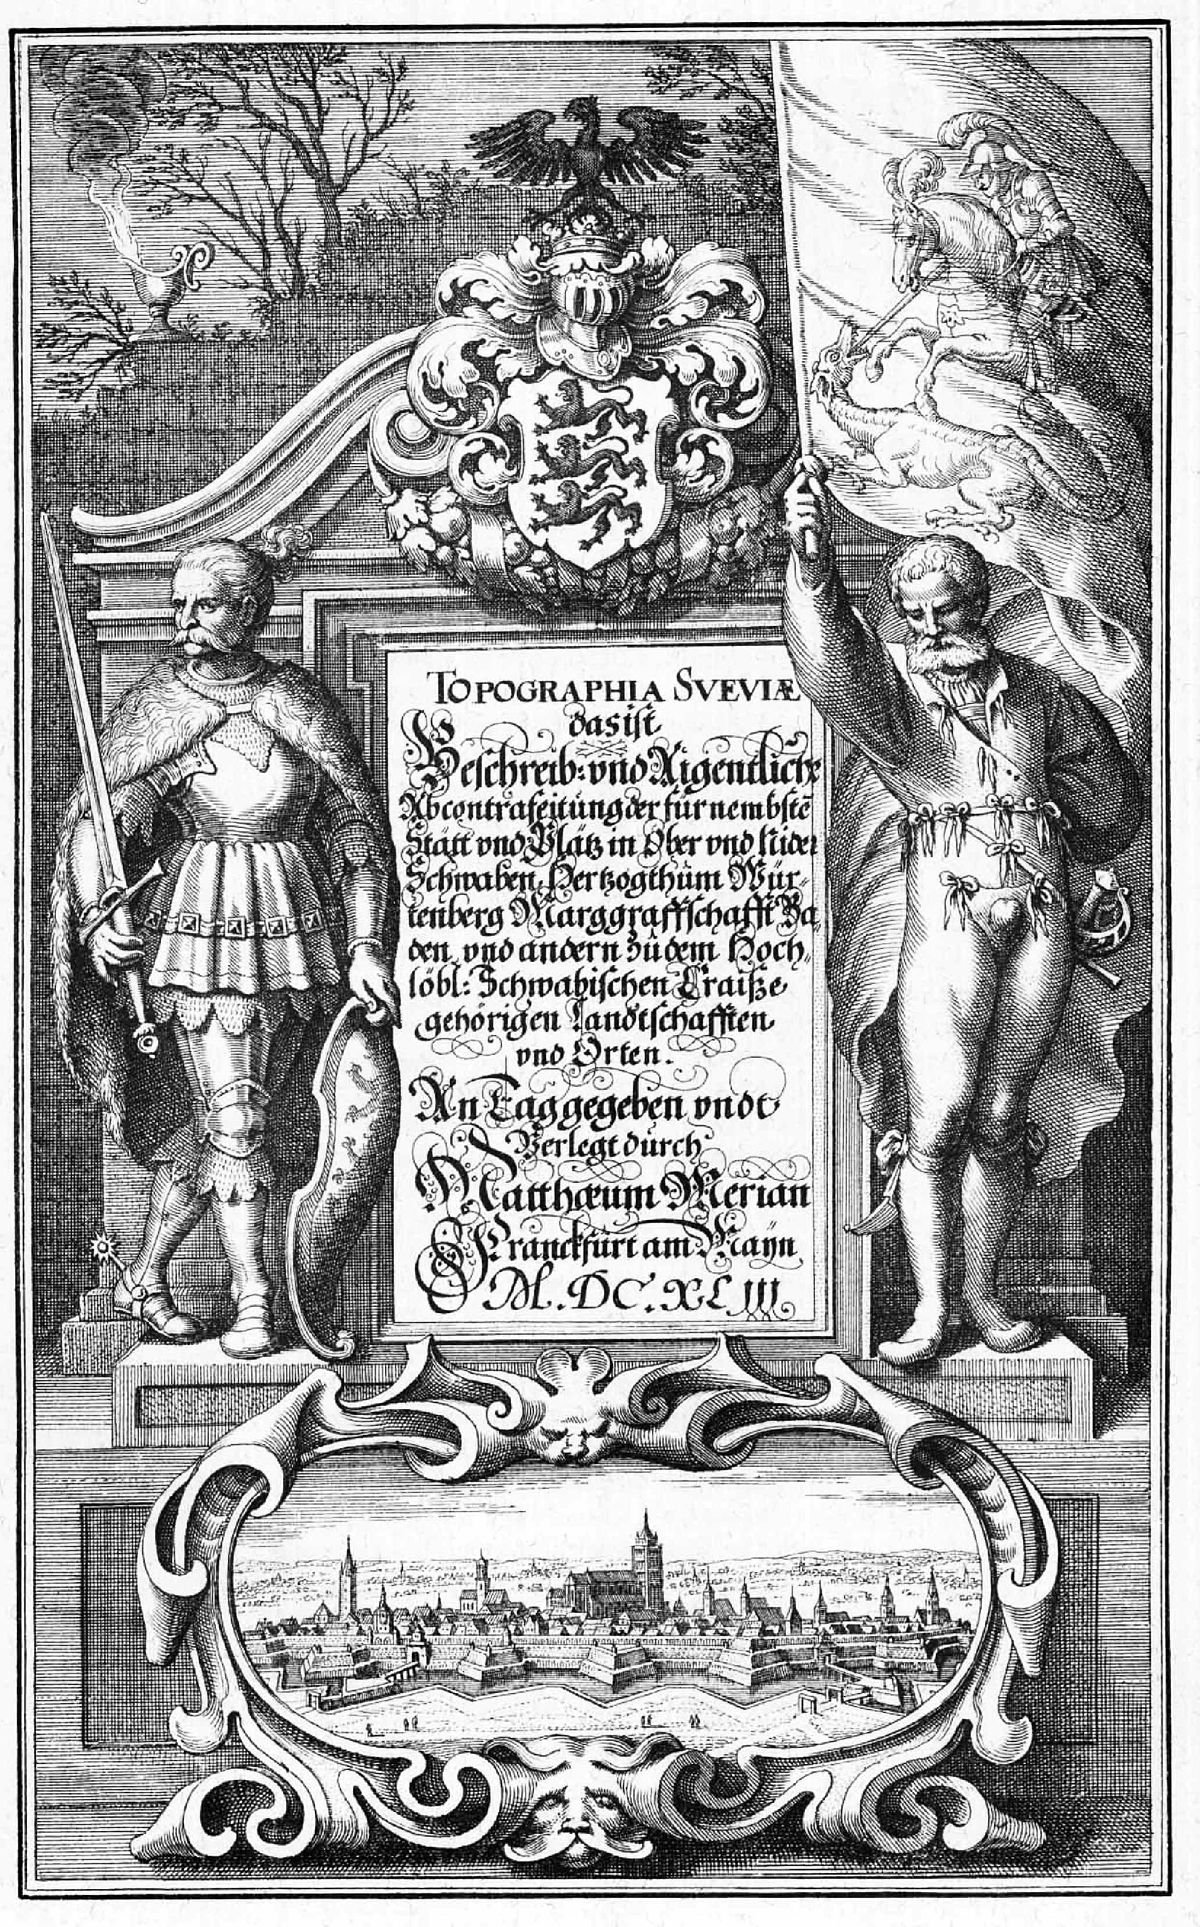 TOPOGRAPHIA SVEVIÆ
das ist
Beschreib: vnd Aigentliche
Abcontrafeitung der fürnembstē
Stätt vnd Plätz in Ober vnd Nider
Schwaben, Hertzogthum Wür-
tenberg Marggraffschafft Ba
den vnd andern zu dem Hoch,
löbl: Schwabischen Craiße
gehörigen Landtschafften
vnd Orten.
An Tag gegeben vndt
Verlegt durch
Matthæum Merian
Franckfurt am Mayn
M.DC.XLIII